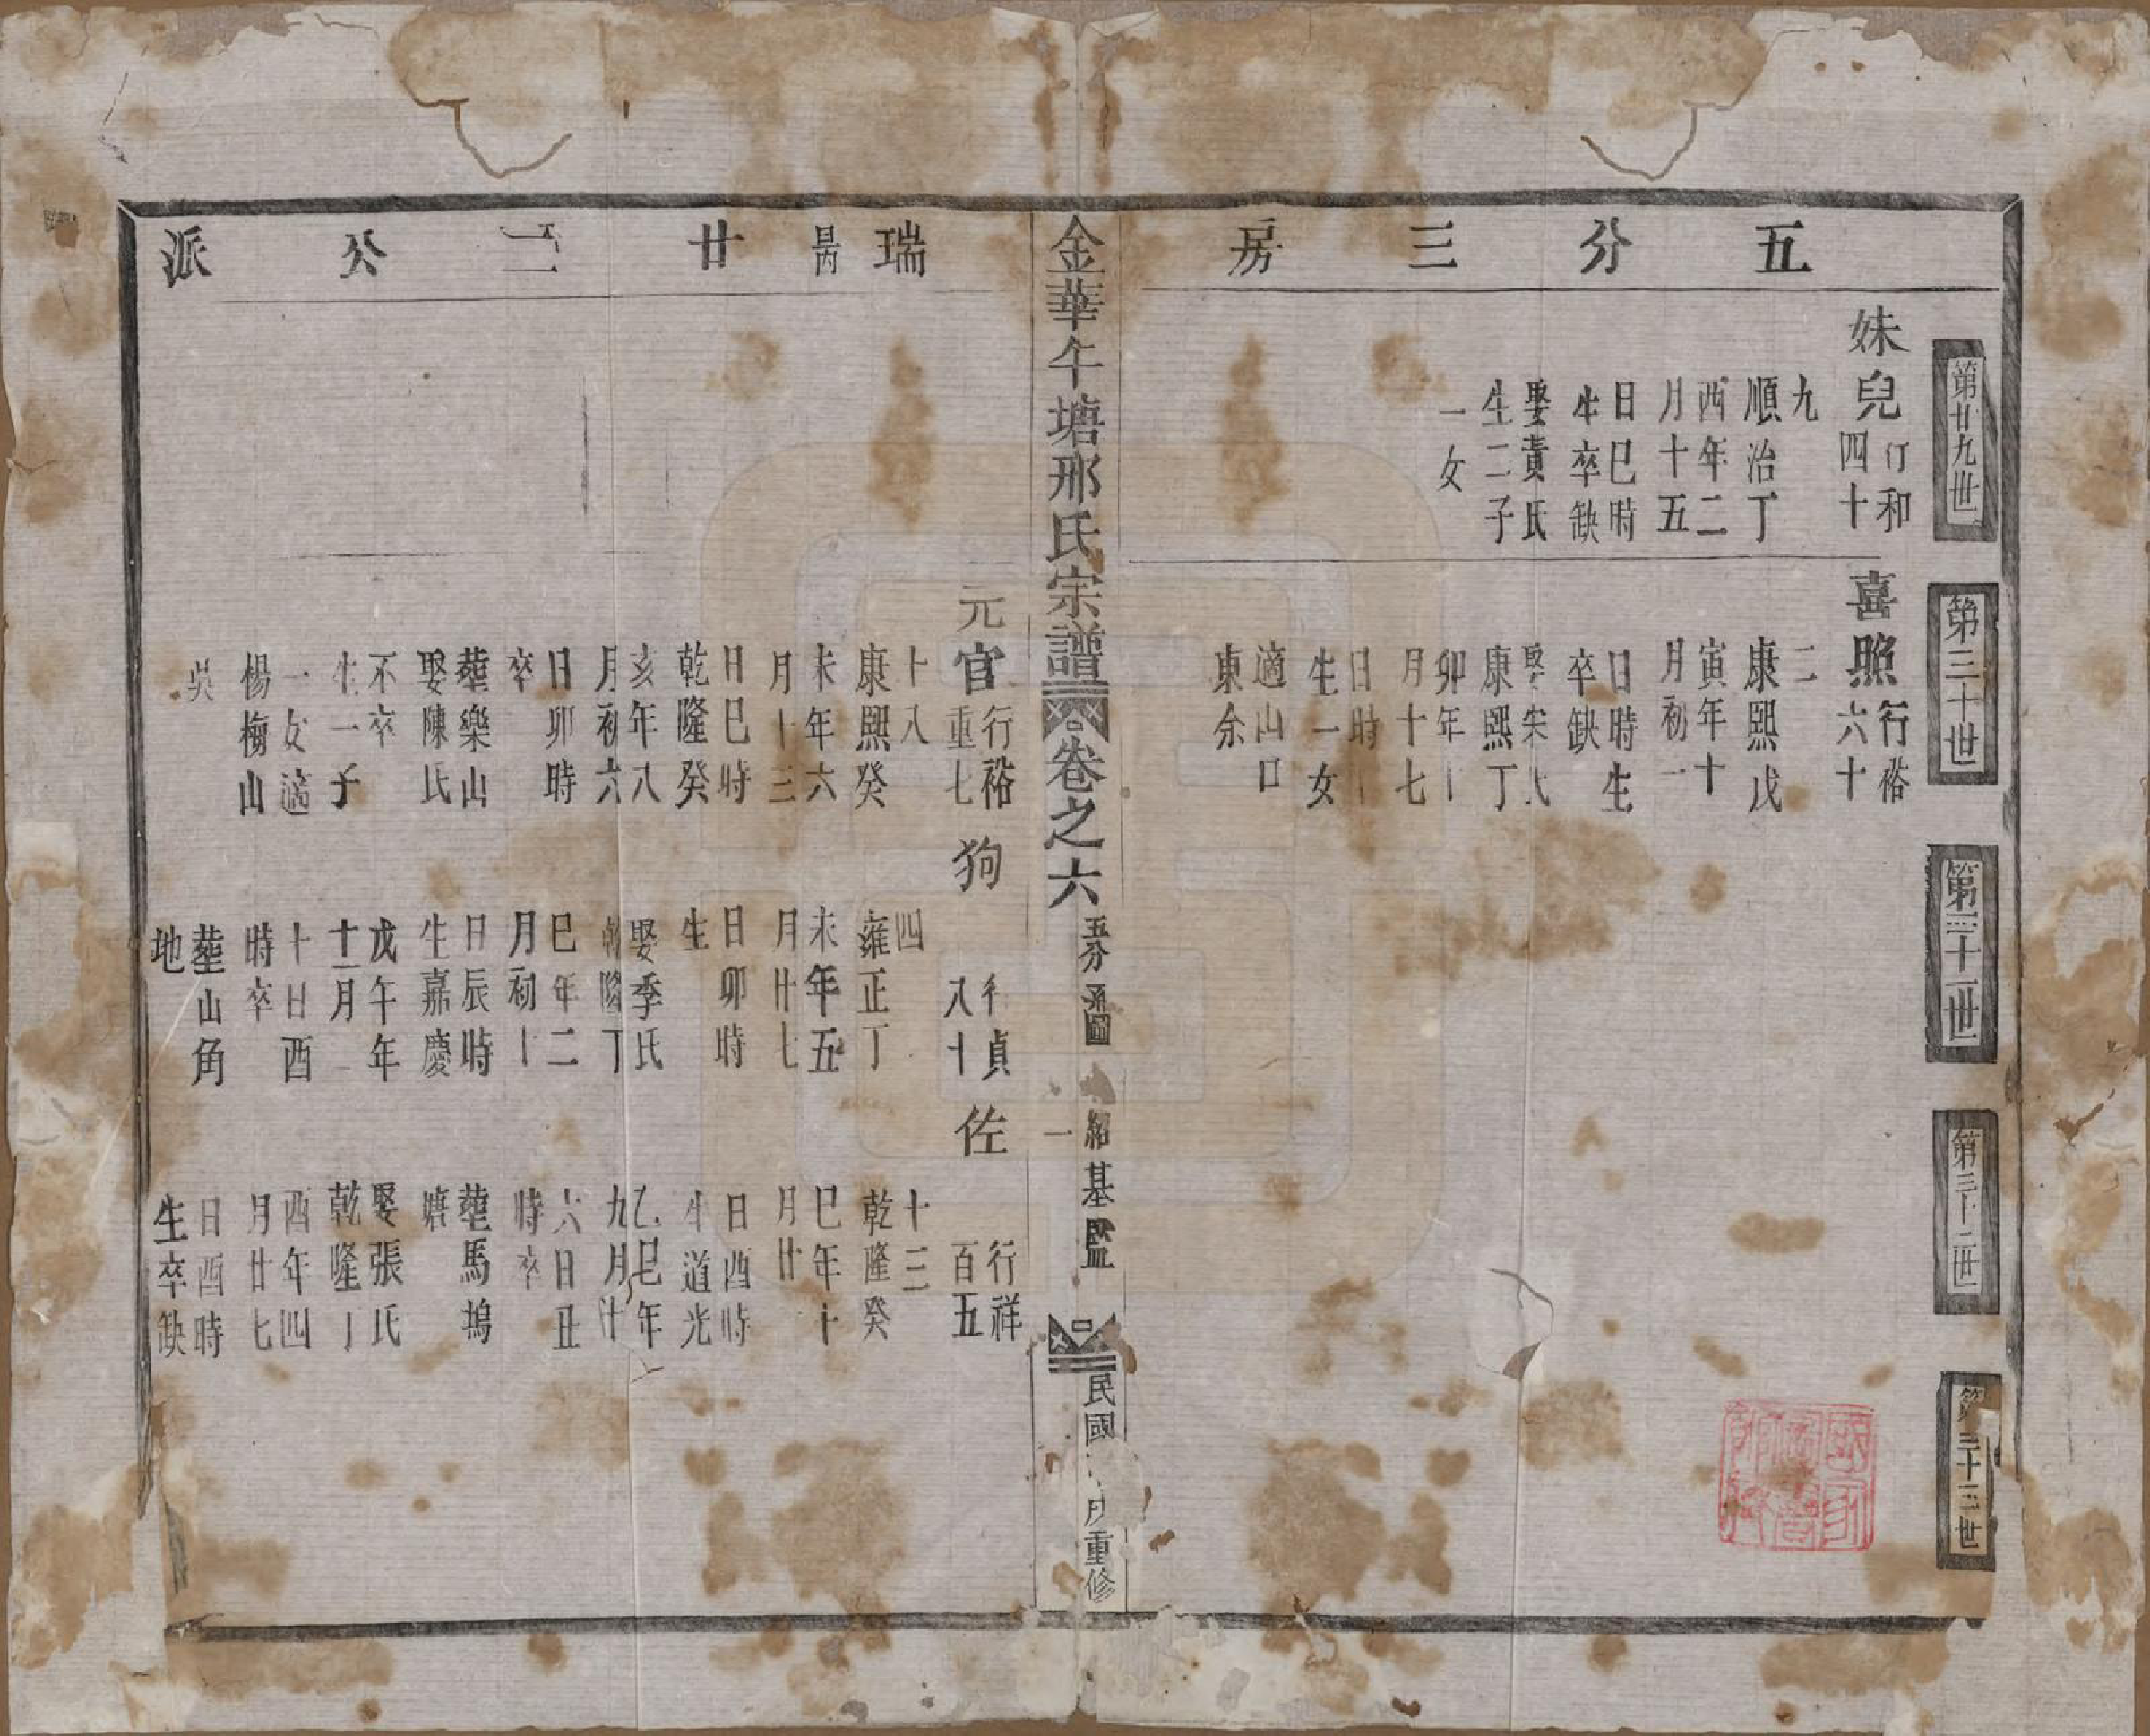 五分三房
第廿九世
第三十世
第三十一世
第三十二世
第三十三世
妹兒
行和
四十
九
順治丁
酉年二
月十五
日巳時
生卒缺
娶責氏
生二子
一女
喜照
行裕
六十
二
康熙戊
寅年十
月初一
日時生
卒缺
娶宋氏
康熙丁
卯年
月十七
日時
生一女
適山口
東余
金華午塘邢氏宗譜
卷之六
五分
圖
一
紹基監
民國
重修
瑞昌丙廿二公派
元官
行裕
重七
十八
康熙癸
未年六
月十三
日巳時
乾隆癸
亥年八
月初六
日卯時
卒
塟樂山
娶陳氏
不卒
生一子
一女適
楊梅山
吳
狗
行貞
八十
四
雍正丁
未年五
月廿七
日卯時
生
娶季氏
乾隆丁
巳年二
月初十
日辰時
生嘉慶
戊午年
十一月
十日酉
時卒
塟山角
地
佐
行祥
百五
十三
乾隆癸
巳年十
月廿
日酉時
生道光
乙巳年
九月廿
六日丑
時卒
塟馬塢
塘
娶張氏
乾隆丁
酉年四
月廿七
日酉時
生卒缺